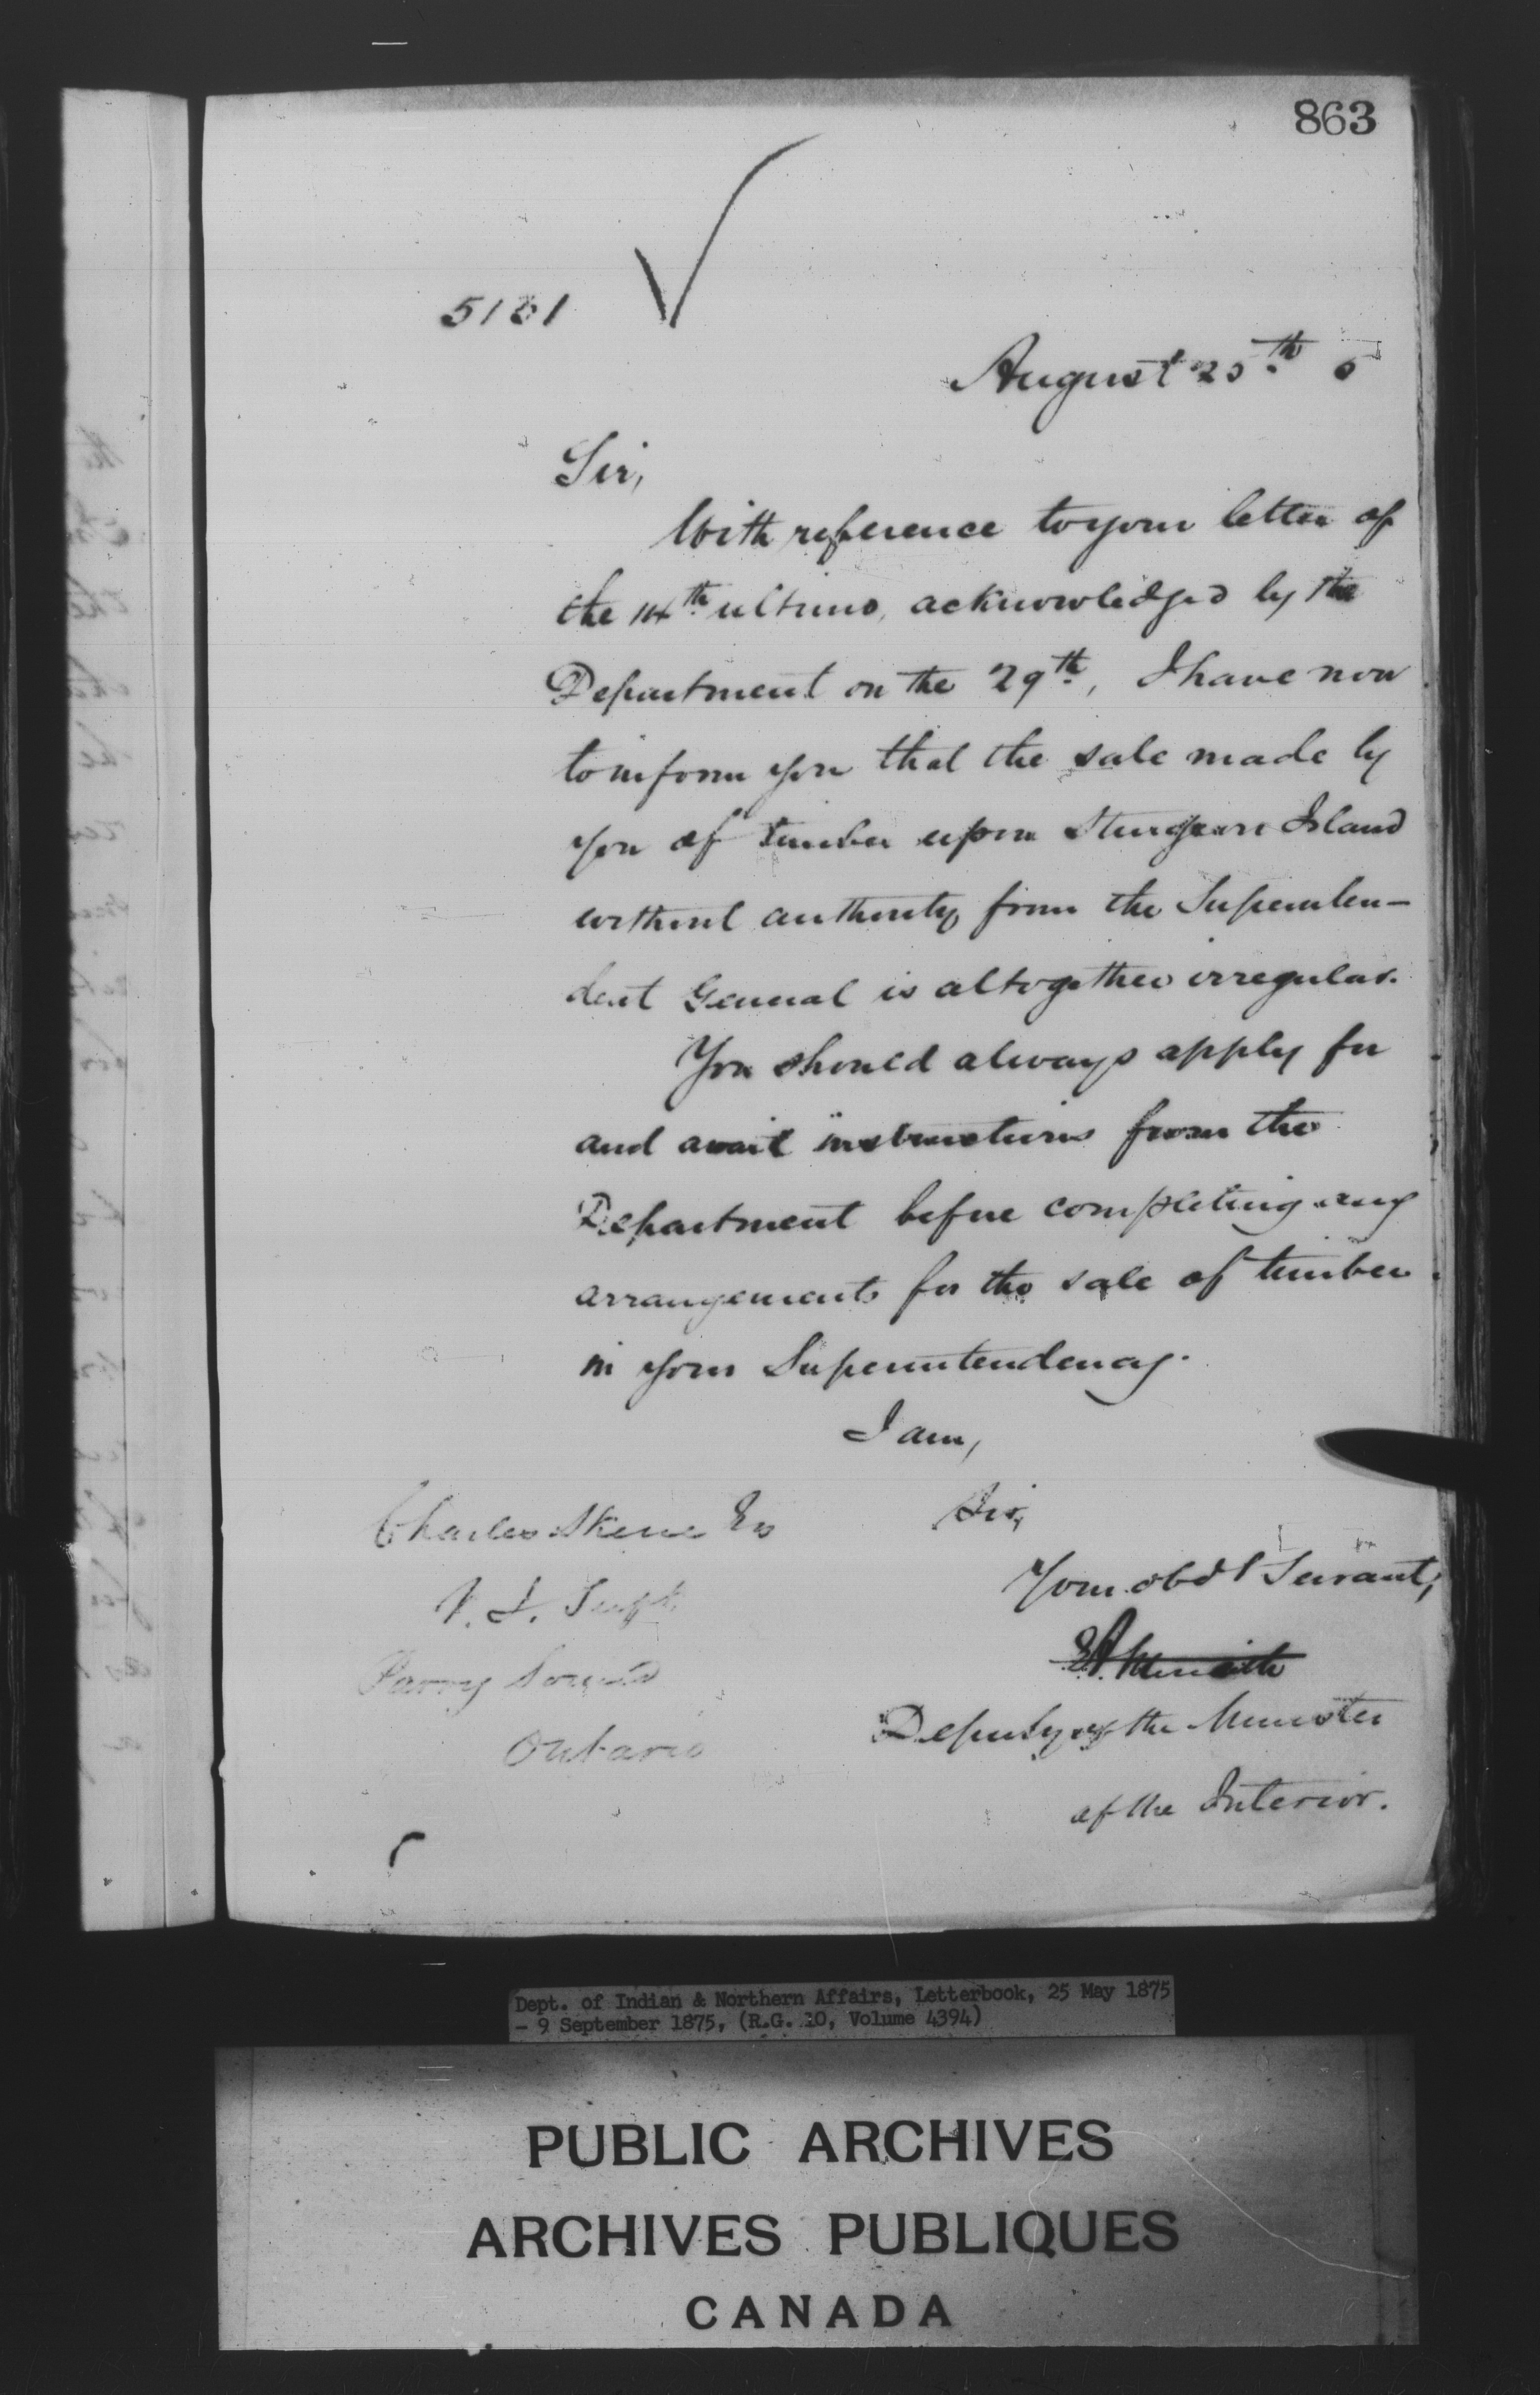 863
5131
August 25th 5
Sir,
With reference to your letter of
the 14th ultimo, acknowledged by the
Department on the 29th, I have now
to inform you that the sale made by
you of timber upon Sturgeon Island
without authority from the Superinten-
dent General is altogether irregular.
You should always apply for
and await instructions from the
Department before completing any
arrangements for the sale of timber
in your Superintendency.
I am,
Sir,
Your obdt Servant,
Deputy of the Minister
of the Interior.
Charles Skene Es
V. I. Supt.
Parry Sound
Ontario
Dept. of Indian & Northern Affairs, Letterbook, 25 May 1875
- 9 September 1875, (R.G. 10, Volume 4394)
PUBLIC ARCHIVES
ARCHIVES PUBLIQUES
CANADA